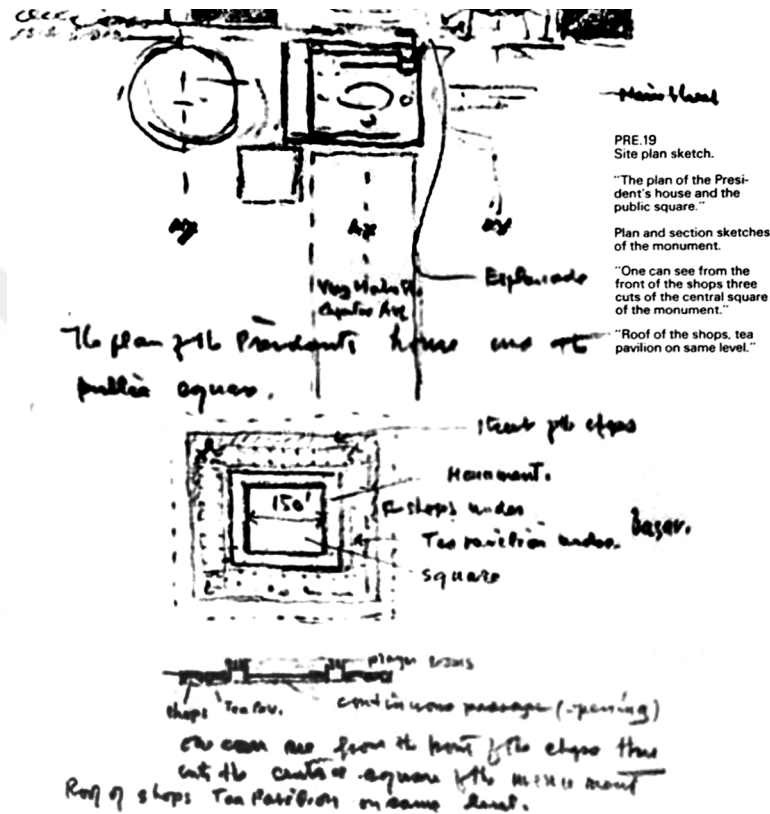 Main Street
PRE.19
Site plan sketch.
"The plan of the Presi-
dent's house and the
public square."
Plan and section sketches
of the monument.
"One can see from the
front of the shops three
cuts of the central square
of the monument."
"Roof of the shops, tea
pavilion on same level."
Esplanade
The plan of the Presidents house and the
public square.
Street of the shops
Monument.
150'
shops under
Bazar.
Tea pavilion under.
square
prayer rooms
shops Tea Pav. continuous passage (opening)
one can see from the front of the shops three
cuts the central square of the monument
Roof of shops Tea Pavilion on same level.